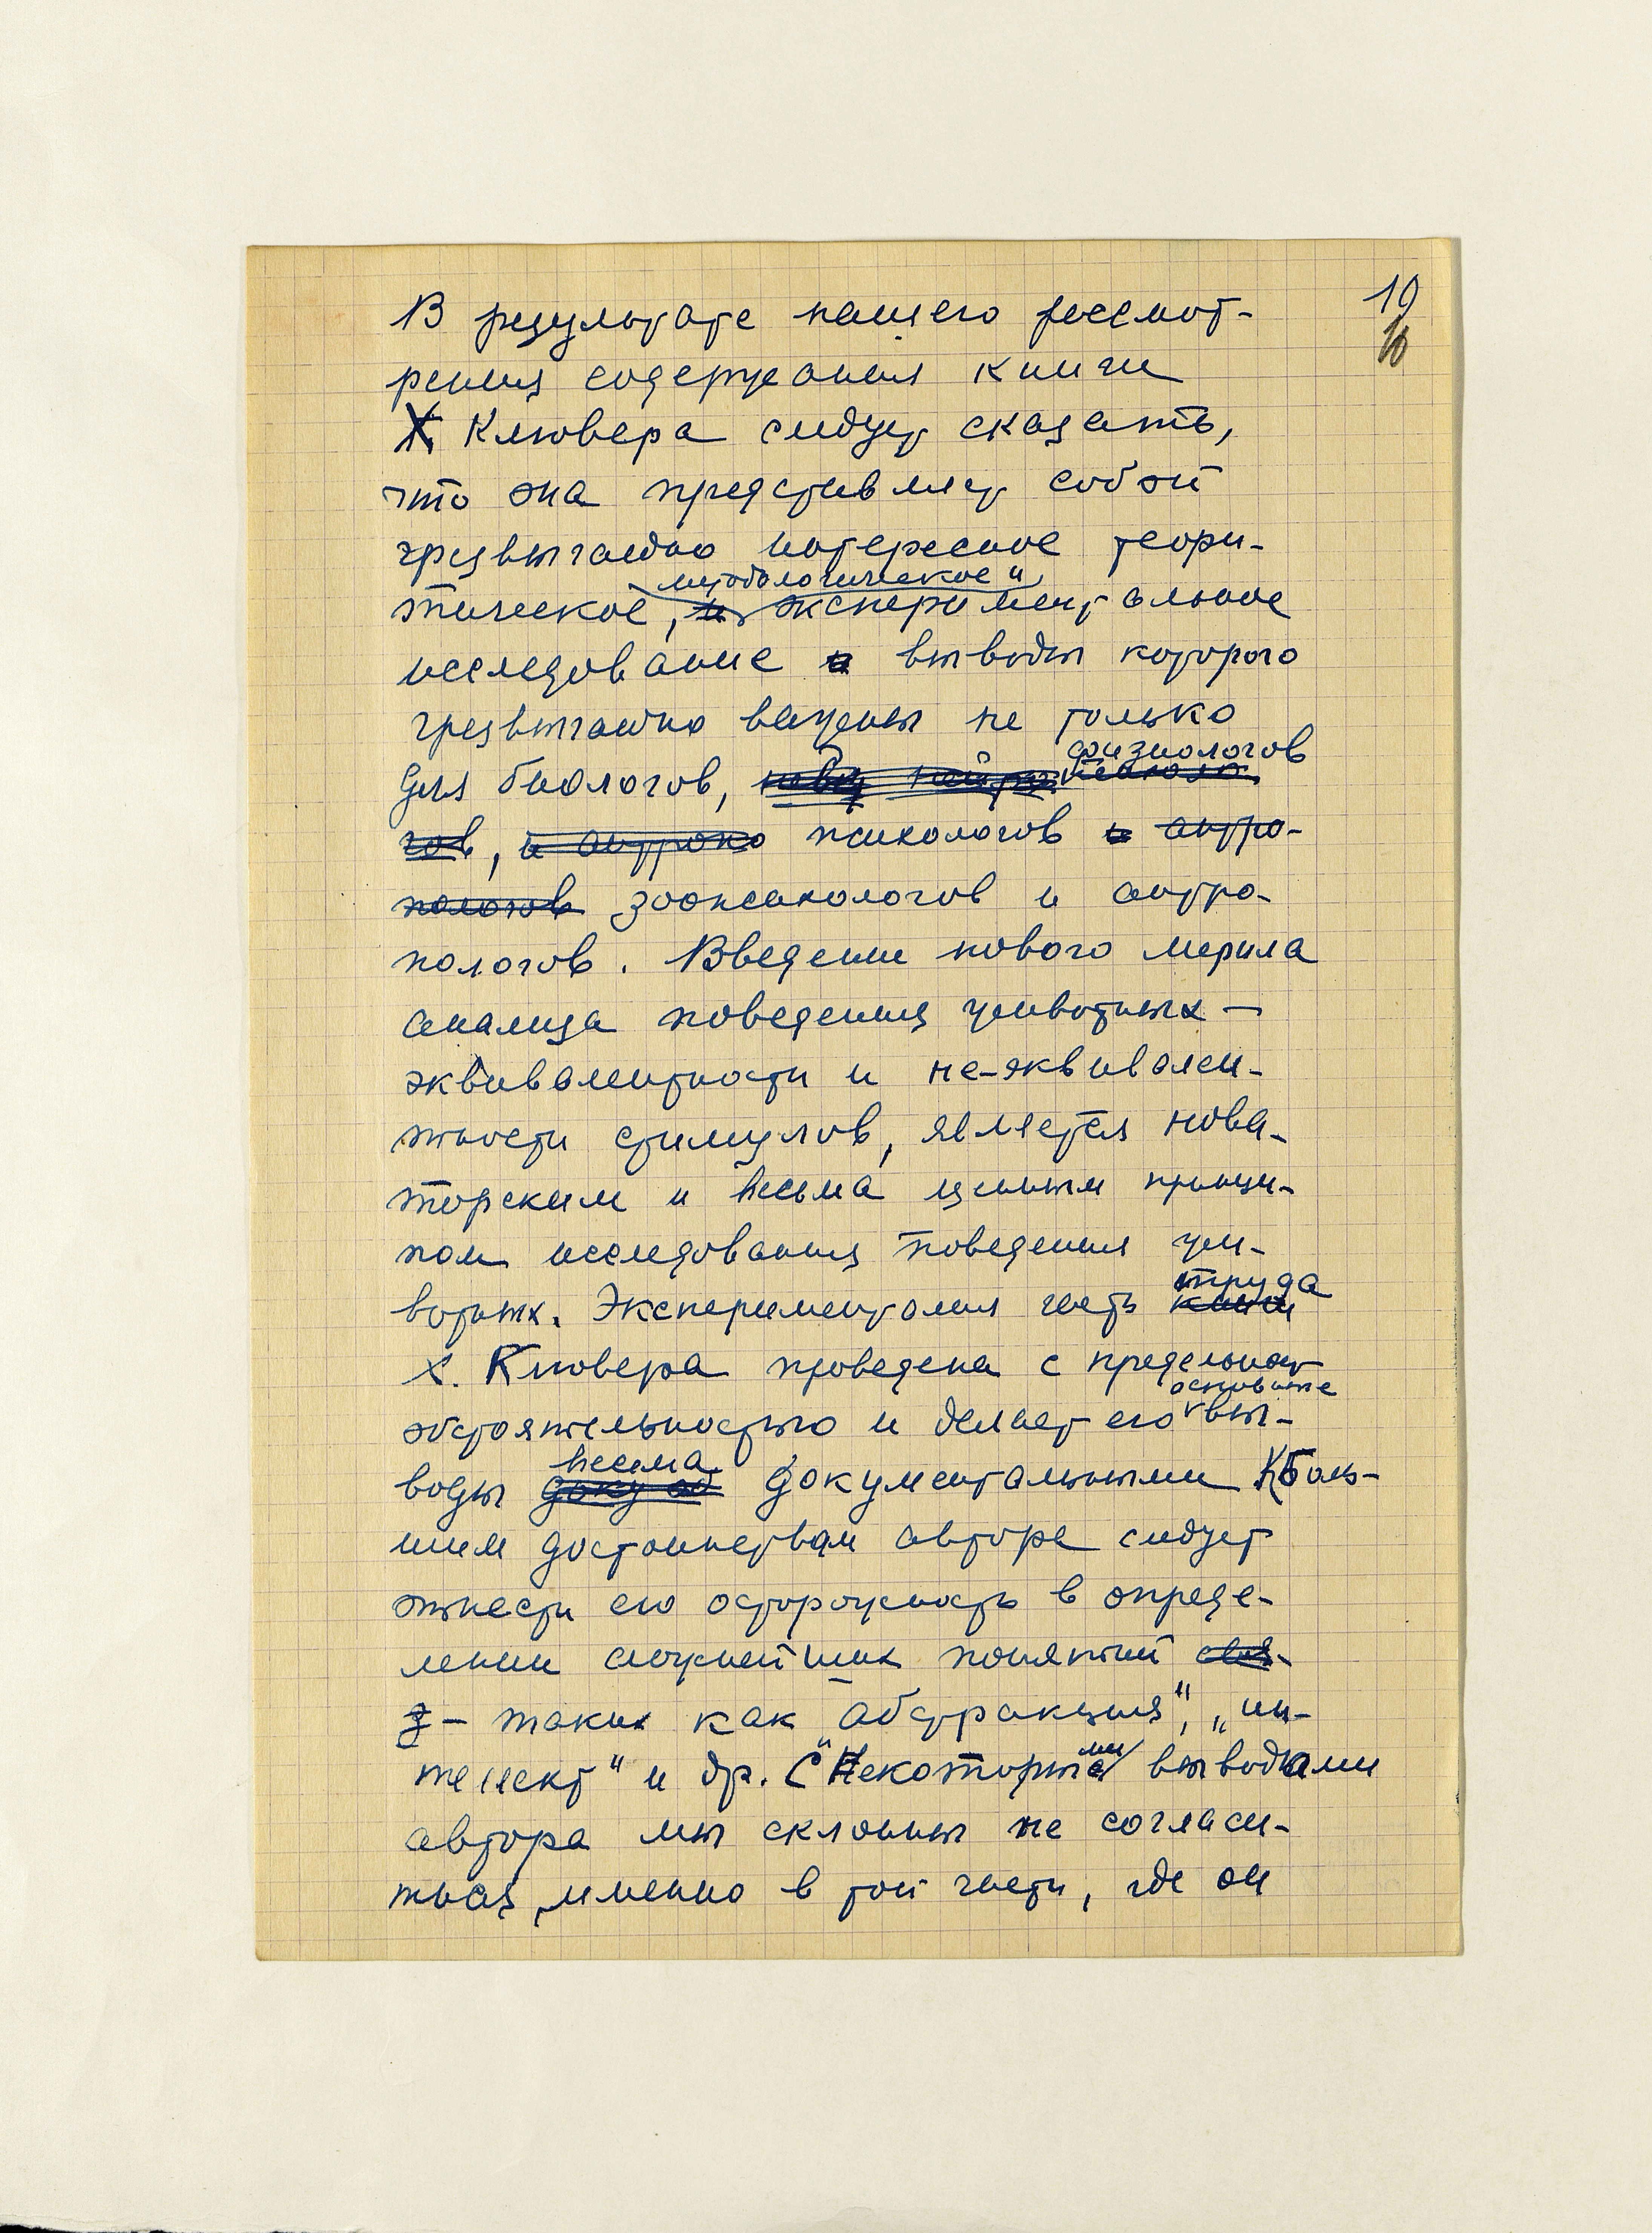 19
10
В результате нашего рассмот-
рения содержания книги
Х. Клювера следует сказать,
что она представляет собой
чрезвычайно интересное теори-
методологическое и
тическое, и экспериментальное
исследование и выводы которого
чрезвычайно важны не только
физиологов
для биологов, психоло-
гов, и антропо психологов и антро-
пологов зоопсихологов и антро-
пологов. Введение нового мерила
анализа поведения животных —
эквивалентности и не-эквивален-
тности стимулов, является нова-
торским и весьма ценным принци-
пом исследования поведения жи-
труда
вотных. Экспериментальная часть книги
Х. Клювера проведена с предельной
основные
обстоятельностью и делает его вы-
весьма
воды документальными К боль-
шим достоинствам автора следует
отнести его осторожность в опреде-
лении сложнейших понятий
– таких как „абстракция", „ин-
теллект" и др. С некоторыми выводами
автора мы склонны не согласи-
ться, именно в той части, где он